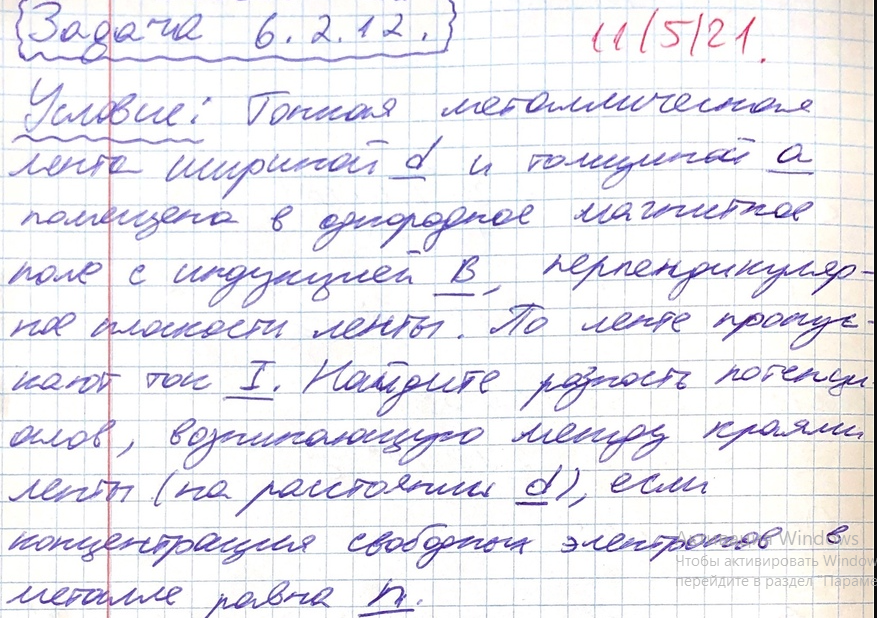 Задача 6.2.12.
11/5/21.
Условие: Тонкая металлическая
лента шириной d и толщиной a
помещена в однородное магнитное
поле с индукцией B, перпендикуляр-
ное плоскости ленты. По ленте пропус-
кают ток I. Найдите разность потенци
алов, возникающую между краями
ленты (на расстоянии d), если
концентрация свободных электронов в
металле равна n.
Активация Windows
Чтобы активировать Window
перейдите в раздел "Параме